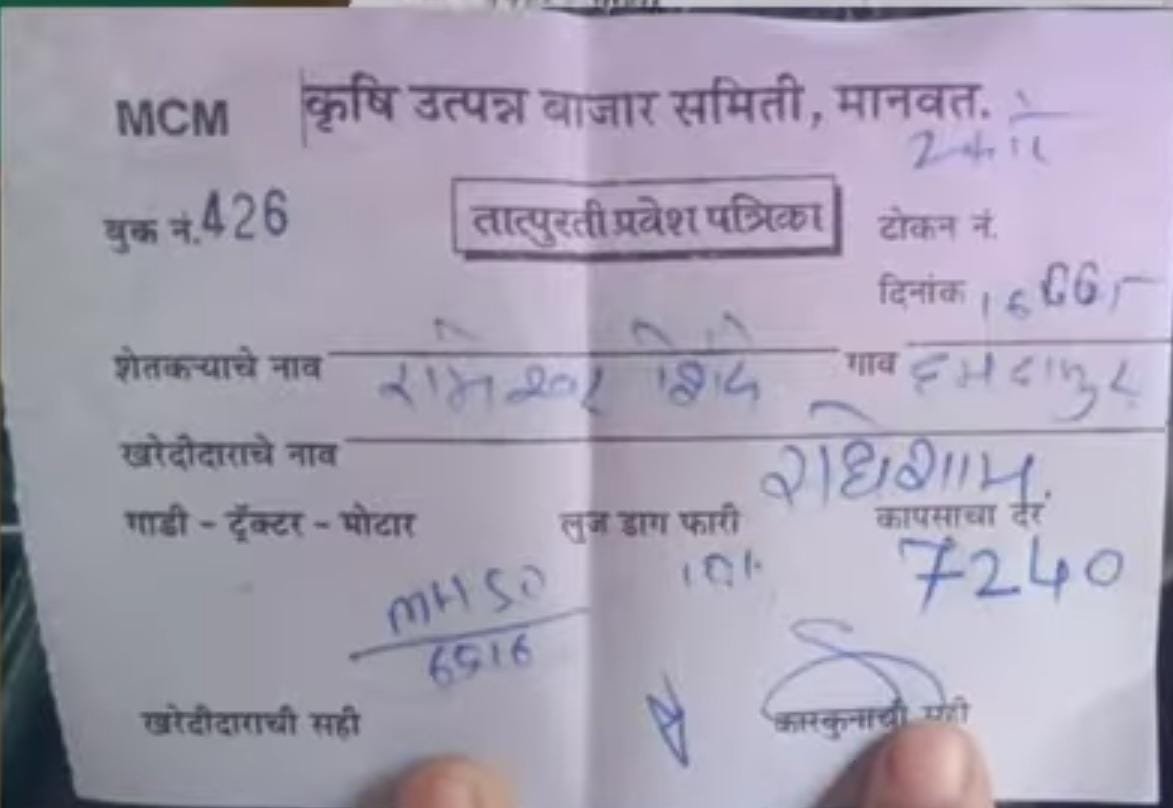 MCM कृषि उत्पन्न बाजार समिती, मानवत.
बुक नं. 426 तात्पुरती प्रवेश पत्रिका टोकन नं.
दिनांक
शेतकऱ्याचे नाव रामेश्वर शिंदे गाव
खरेदीदाराचे नाव राधेशाम.
गाडी - ट्रॅक्टर - मोटार लुज डाग फारी कापसाचा दर
7240
MH50
6516
खरेदीदाराची सही कारकुनाची सही